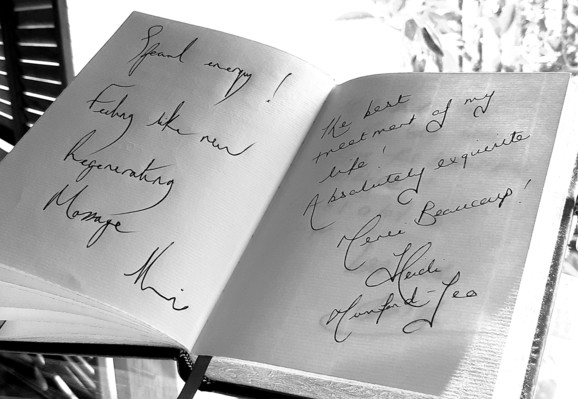 Special energy!
Feeling like new
Regenerating
Massage
The best
treetment of my
life!
Absolutely exquisite
Merci Beaucoup!
Heidi
Mumford-Lee